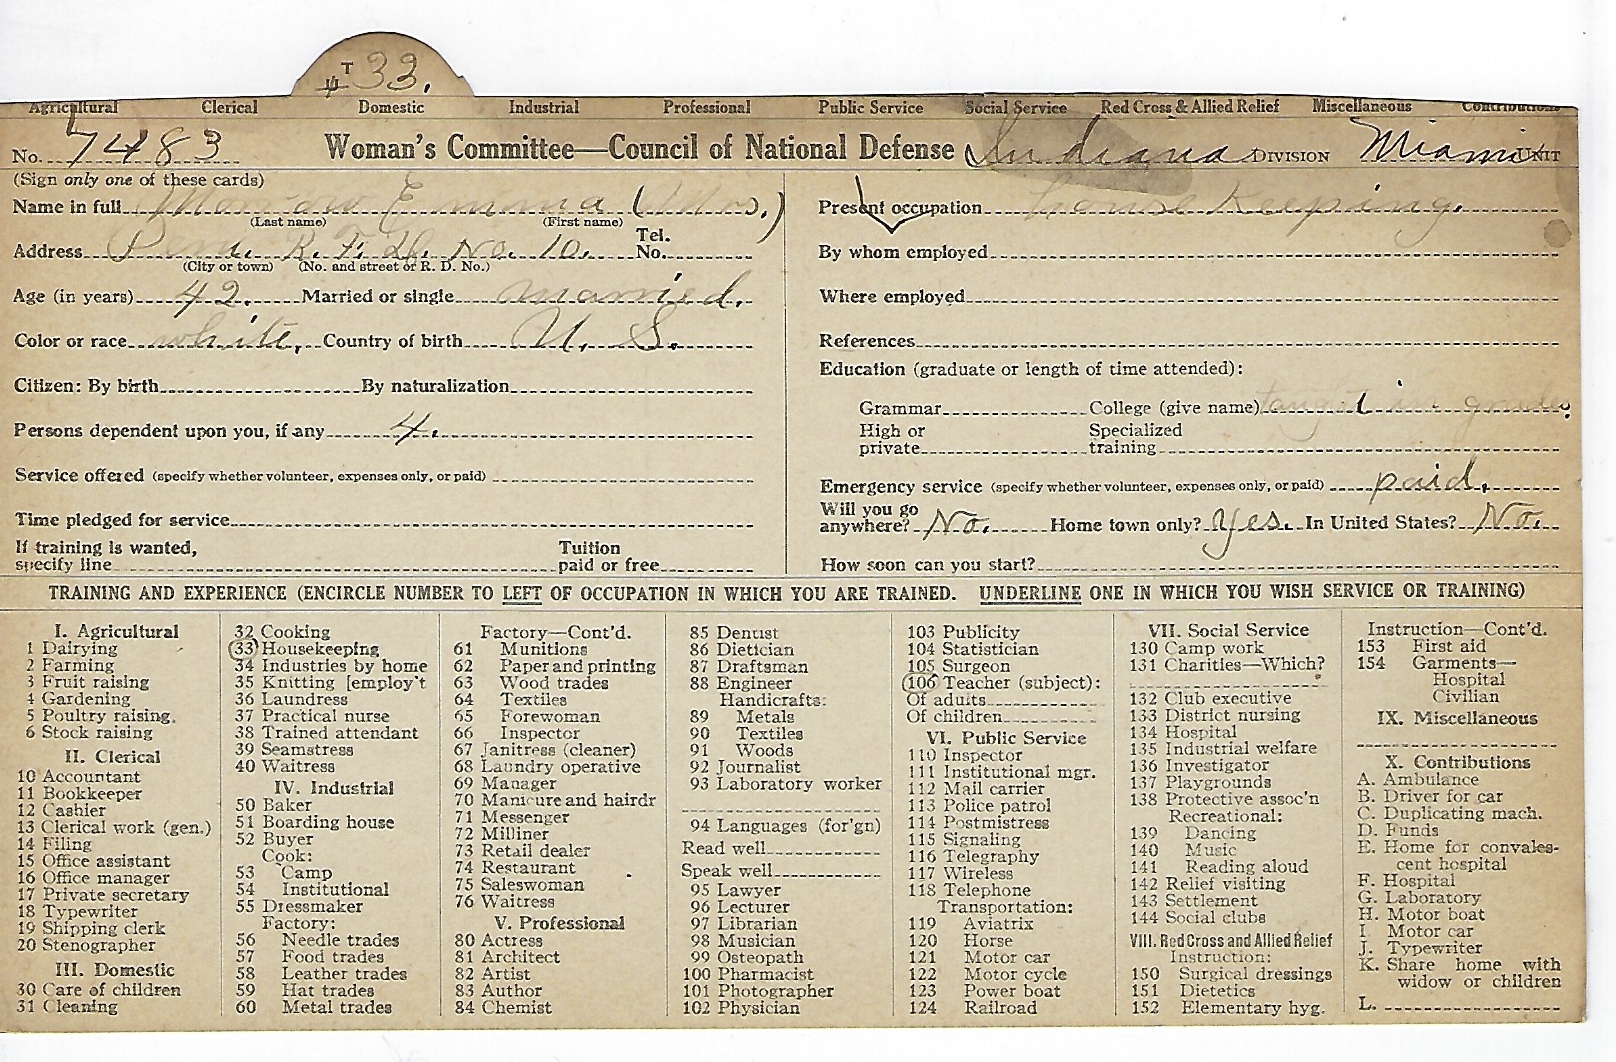 T 33.
Agricultural Clerical Domestic Industrial Professional Public Service Social Service Red Cross & Allied Relief Miscellaneous Contributions
No. 7483 Woman's Committee—Council of National Defense Indiana DIVISION Miami UNIT
(Sign only one of these cards)
Name in full Emma (Mrs.)
(Last name) (First name)
Address Peru. R. F. D. No. 10. Tel. No.
(City or town) (No. and street or R. D. No.)
Age (in years) 42. Married or single married.
Color or race white, Country of birth U. S.
Citizen: By birth By naturalization
Persons dependent upon you, if any 4.
Service offered (specify whether volunteer, expenses only, or paid)
Time pledged for service
If training is wanted, specify line Tuition paid or free
Present occupation house keeping.
By whom employed
Where employed
References
Education (graduate or length of time attended):
Grammar College (give name) taught in grades.
High or private Specialized training
Emergency service (specify whether volunteer, expenses only, or paid) paid.
Will you go anywhere? No. Home town only? Yes. In United States? No.
How soon can you start?
TRAINING AND EXPERIENCE (ENCIRCLE NUMBER TO LEFT OF OCCUPATION IN WHICH YOU ARE TRAINED. UNDERLINE ONE IN WHICH YOU WISH SERVICE OR TRAINING)
I. Agricultural
1 Dairying
2 Farming
3 Fruit raising
4 Gardening
5 Poultry raising
6 Stock raising
II. Clerical
10 Accountant
11 Bookkeeper
12 Cashier
13 Clerical work (gen.)
14 Filing
15 Office assistant
16 Office manager
17 Private secretary
18 Typewriter
19 Shipping clerk
20 Stenographer
III. Domestic
30 Care of children
31 Cleaning
32 Cooking
33 Housekeeping
34 Industries by home
35 Knitting [employ't
36 Laundress
37 Practical nurse
38 Trained attendant
39 Seamstress
40 Waitress
IV. Industrial
50 Baker
51 Boarding house
52 Buyer
Cook:
53 Camp
54 Institutional
55 Dressmaker
Factory:
56 Needle trades
57 Food trades
58 Leather trades
59 Hat trades
60 Metal trades
Factory—Cont'd.
61 Munitions
62 Paper and printing
63 Wood trades
64 Textiles
65 Forewoman
66 Inspector
67 Janitress (cleaner)
68 Laundry operative
69 Manager
70 Manicure and hairdr
71 Messenger
72 Milliner
73 Retail dealer
74 Restaurant
75 Saleswoman
76 Waitress
V. Professional
80 Actress
81 Architect
82 Artist
83 Author
84 Chemist
85 Dentist
86 Dietician
87 Draftsman
88 Engineer
Handicrafts:
89 Metals
90 Textiles
91 Woods
92 Journalist
93 Laboratory worker
94 Languages (for'gn)
Read well
Speak well
95 Lawyer
96 Lecturer
97 Librarian
98 Musician
99 Osteopath
100 Pharmacist
101 Photographer
102 Physician
103 Publicity
104 Statistician
105 Surgeon
106 Teacher (subject):
Of adults
Of children
VI. Public Service
110 Inspector
111 Institutional mgr.
112 Mail carrier
113 Police patrol
114 Postmistress
115 Signaling
116 Telegraphy
117 Wireless
118 Telephone
Transportation:
119 Aviatrix
120 Horse
121 Motor car
122 Motor cycle
123 Power boat
124 Railroad
VII. Social Service
130 Camp work
131 Charities—Which?
132 Club executive
133 District nursing
134 Hospital
135 Industrial welfare
136 Investigator
137 Playgrounds
138 Protective assoc'n
Recreational:
139 Dancing
140 Music
141 Reading aloud
142 Relief visiting
143 Settlement
144 Social clubs
VIII. Red Cross and Allied Relief
Instruction:
150 Surgical dressings
151 Dietetics
152 Elementary hyg.
Instruction—Cont'd.
153 First aid
154 Garments—
Hospital
Civilian
IX. Miscellaneous
X. Contributions
A. Ambulance
B. Driver for car
C. Duplicating mach.
D. Funds
E. Home for convales-
cent hospital
F. Hospital
G. Laboratory
H. Motor boat
I. Motor car
J. Typewriter
K. Share home with
widow or children
L.